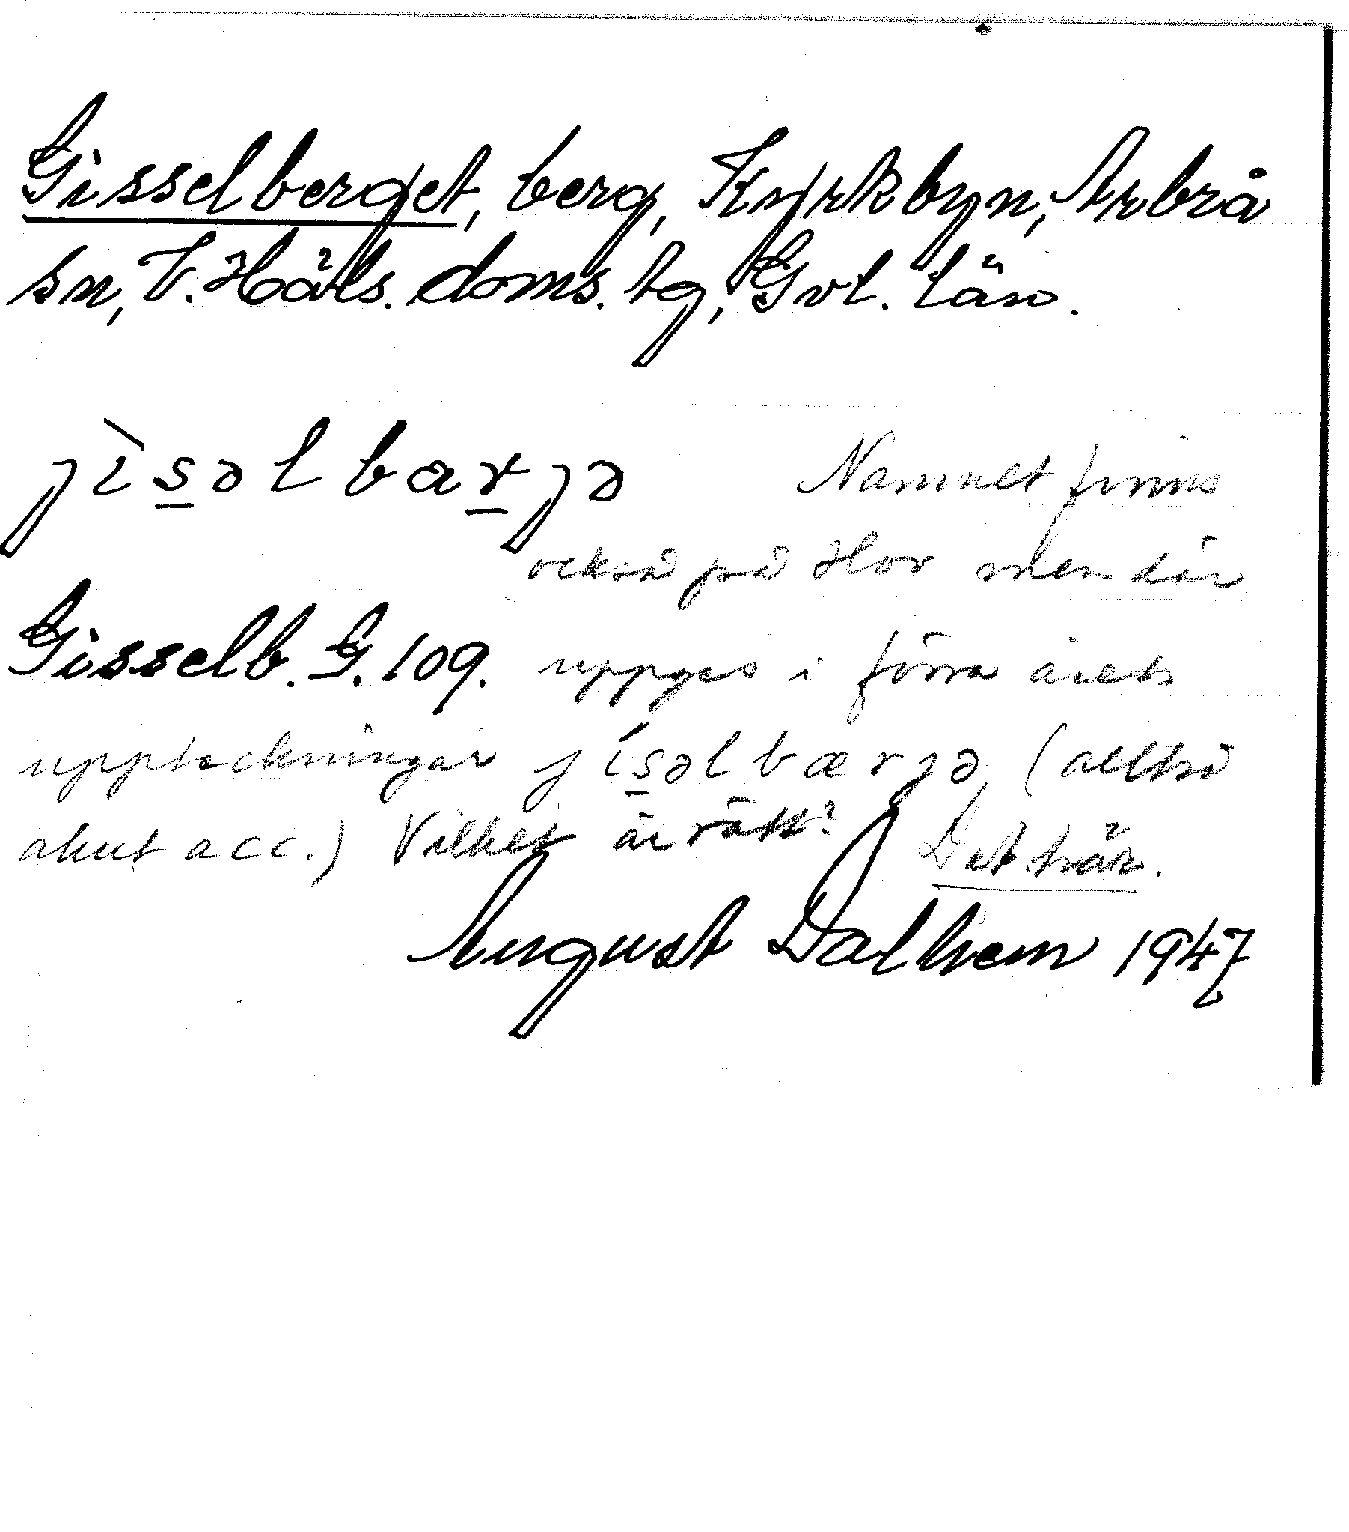 Gisselberget, berg, Kyrkbyn, Arbrå
sn, V. Häls. doms. tg, Gvl. län.
jìsəlbarjə Namnet finns
också på Hov men där
Gisselb. G. 109. uppges i förra årets
uppteckningar jísəlbærjə (alltså
akut acc.) Vilket är rätt? Det här.
August Dalhem 1947